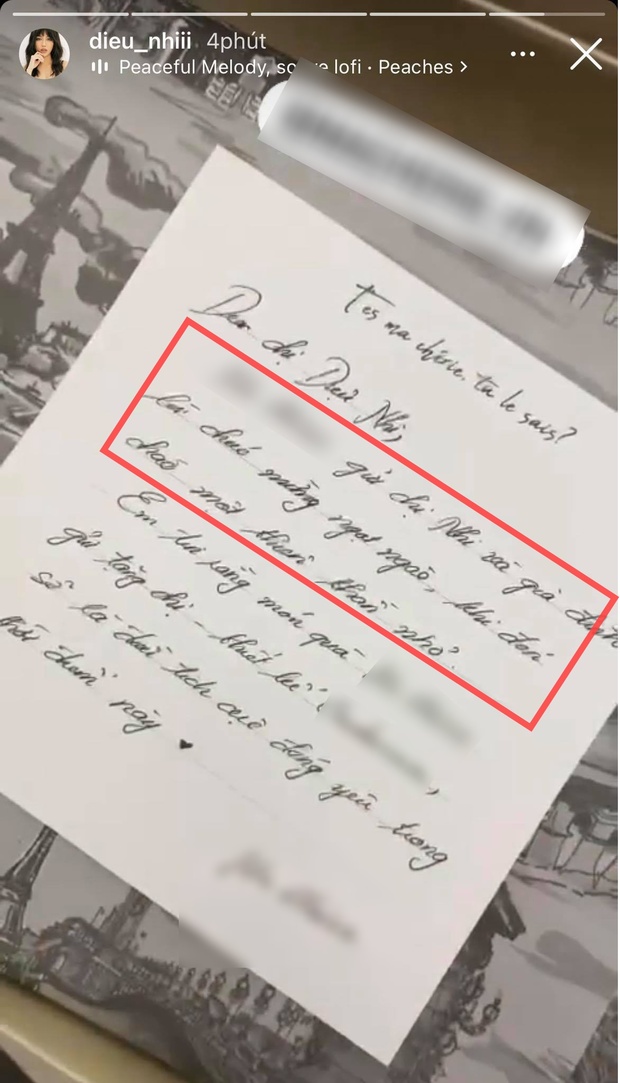 dieu_nhiii 4phút
Peaceful Melody, so ve lofi · Peaches
T'es ma chérie, tu le sais?
Dear chị Diệu Nhi,
gửi chị Nhi và gia đình
lời chúc mừng ngọt ngào, khi đón
chào một thiên thần nhỏ.
Em tin rằng món quà
gửi tặng chị - thiết kế
sẽ là chiếc tích cực đáng yêu trong
thời điểm này ♥